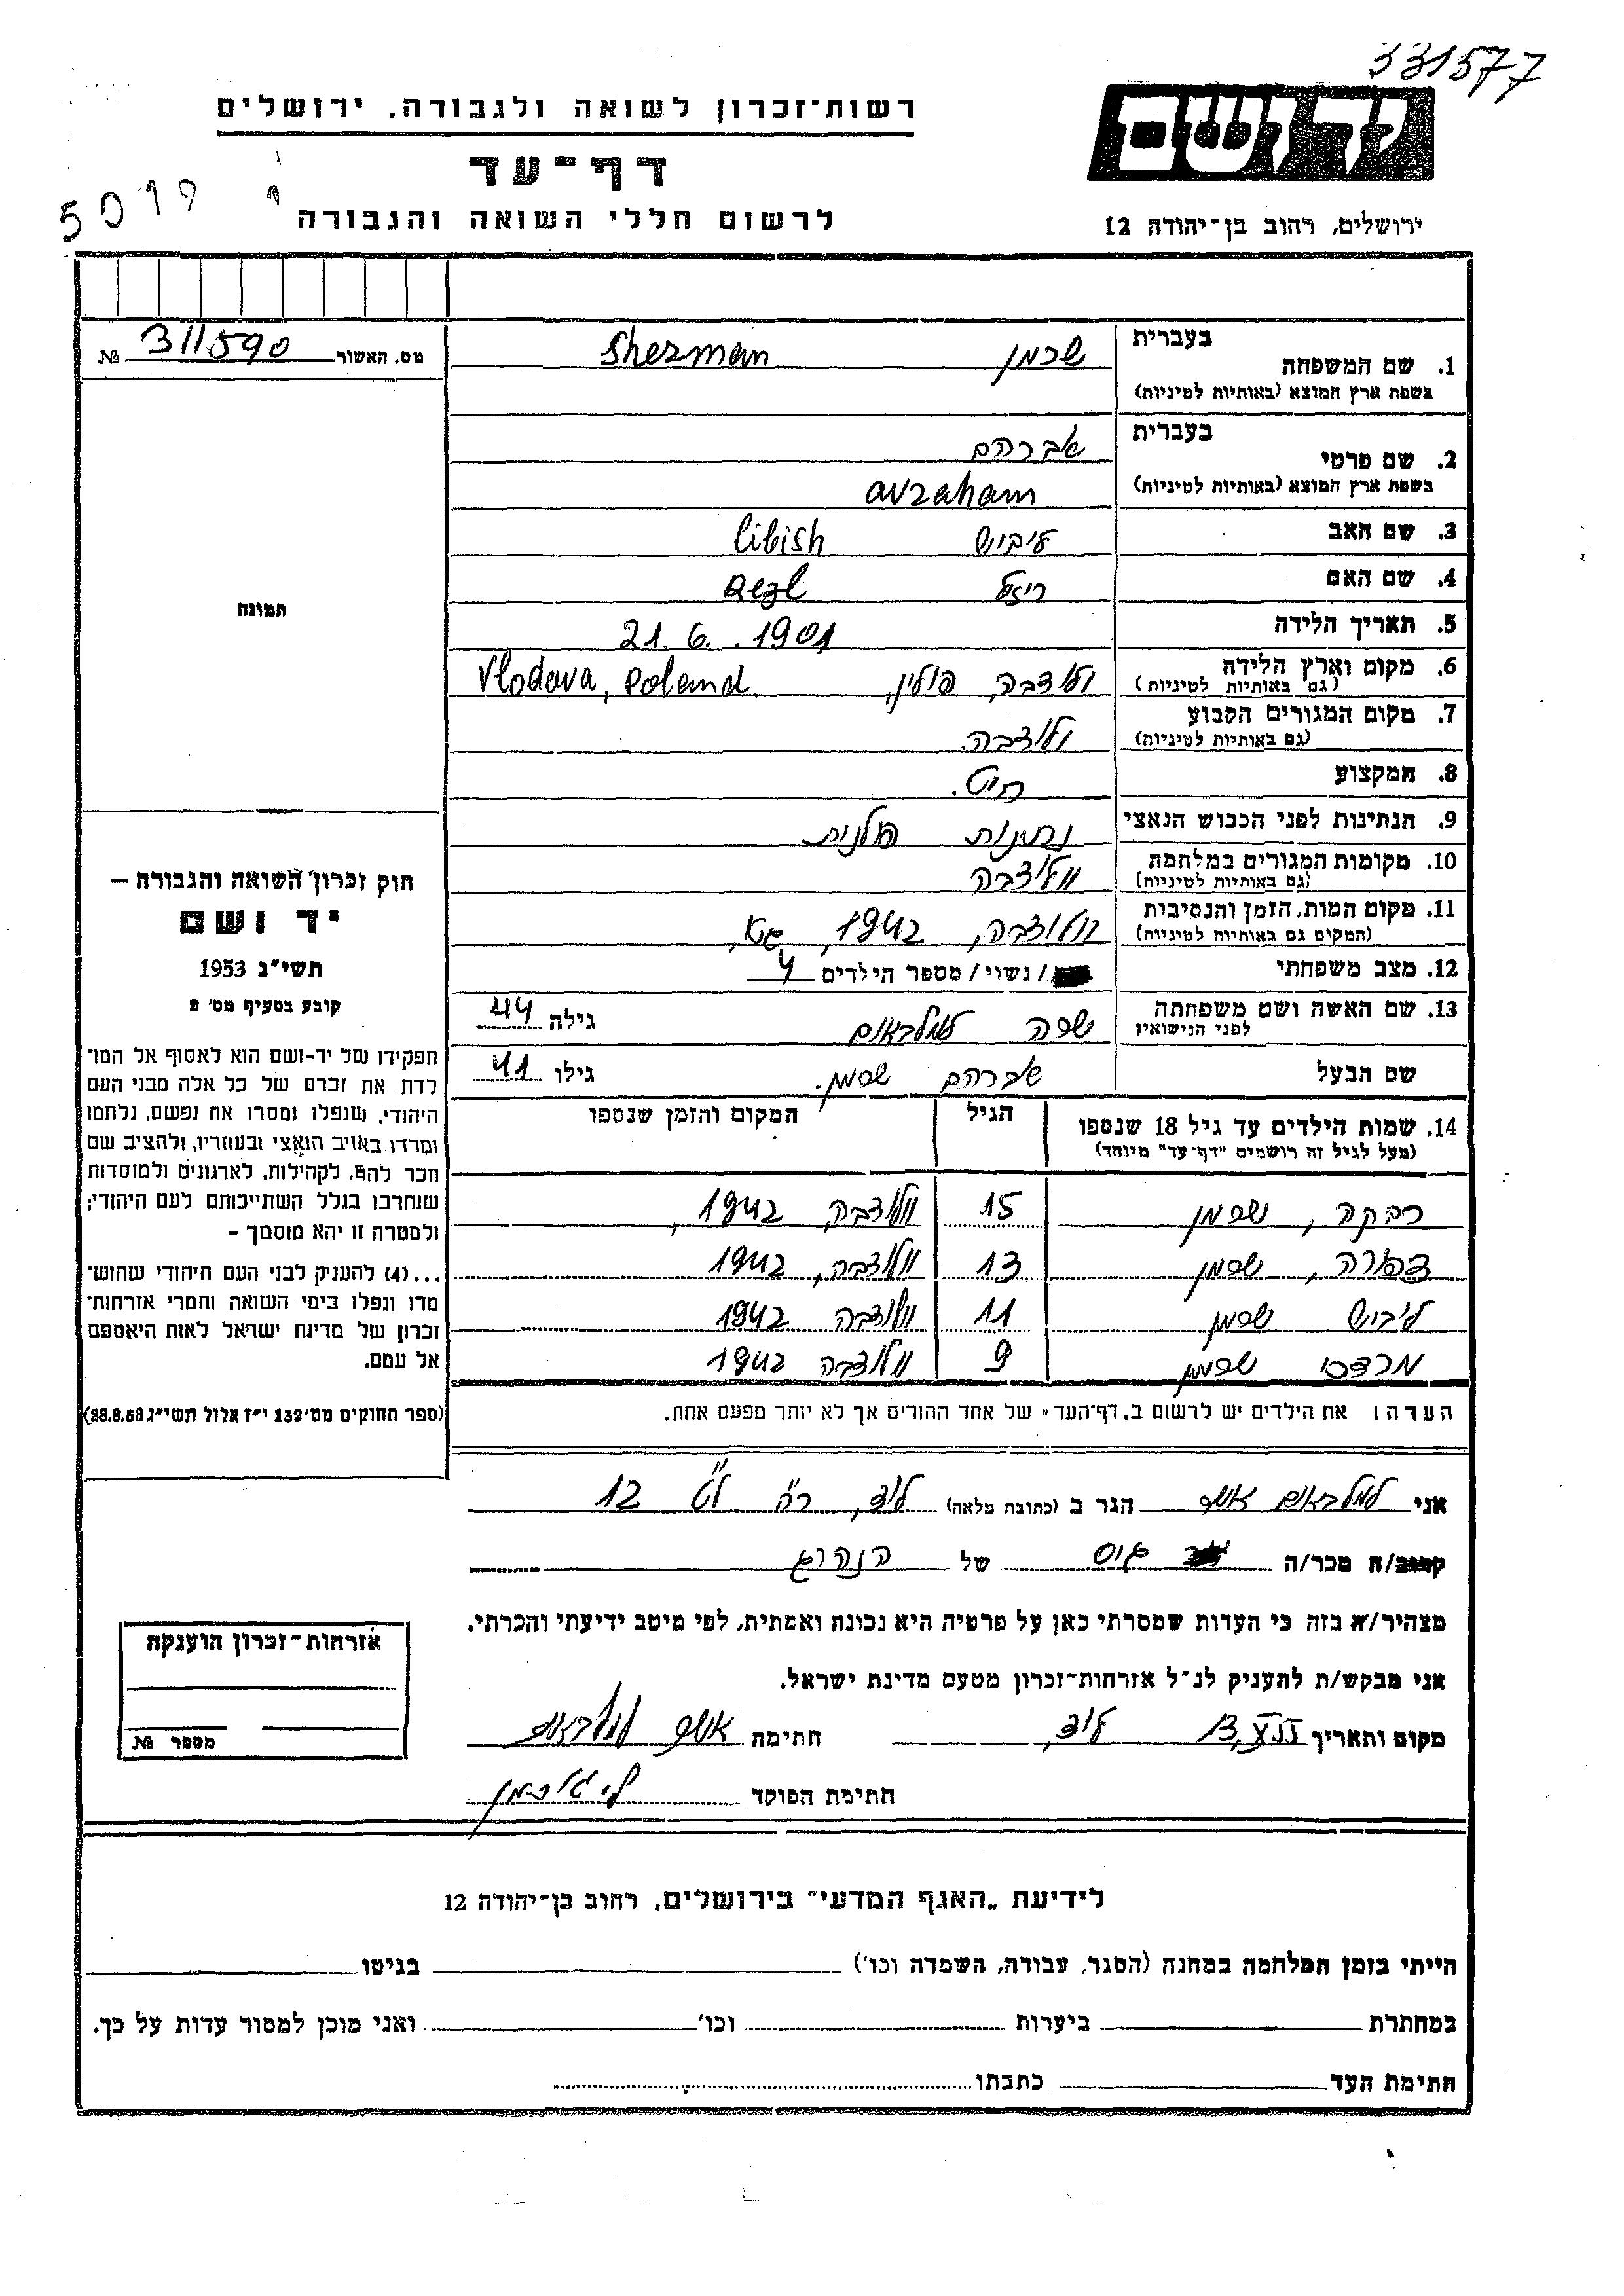 331577
ידושם
רשות־זכרון לשואה ולגבורה, ירושלים
דף־עד
לרשום חללי השואה והגבורה
ירושלים, רחוב בן־יהודה 12
5019
מס. האשור 311590 №
תמונה
חוק זכרון השואה והגבורה –
יד ושם
תשי"ג 1953
קובע בסעיף מס׳ 2
תפקידו של יד-ושם הוא לאסוף אל המו־
לדת את זכרם של כל אלה מבני העם
היהודי, שנפלו ומסרו את נפשם, נלחמו
ומרדו באויב הנאצי ובעוזריו, ולהציב שם
וזכר להם, לקהילות, לארגונים ולמוסדות
שנחרבו בגלל השתייכותם לעם היהודי;
ולמטרה זו יהא מוסמך –
...(4) להעניק לבני העם היהודי שהוש־
מדו ונפלו בימי השואה והמרי אזרחות־
זכרון של מדינת ישראל לאות היאספם
אל עמם.
(ספר החוקים מס׳132 י"ז אלול תשי"ג 28.8.53)
בעברית
1. שם המשפחה שרמן Sherman
בשפת ארץ המוצא (באותיות לטיניות)
בעברית
2. שם פרטי אברהם
בשפת ארץ המוצא (באותיות לטיניות) avraham
3. שם האב ליבוש libish
4. שם האם ריזל
5. תאריך הלידה 21.6.1901
6. מקום וארץ הלידה ולודבה, פולין, Vlodava, Poland
(גם באותיות לטיניות)
7. מקום המגורים הקבוע ולודבה.
(גם באותיות לטיניות)
8. המקצוע חיט.
9. הנתינות לפני הכבוש הנאצי נתינות פולנית
10. מקומות המגורים במלחמה וולודבה
(גם באותיות לטיניות)
11. מקום המות, הזמן והנסיבות וולודבה, 1942,
(המקום גם באותיות לטיניות)
12. מצב משפחתי / נשוי / מספר הילדים 4
13. שם האשה ושם משפחתה שרה גילה 44
לפני הנישואין
שם הבעל אברהם שרמן. גילו 41
14. שמות הילדים עד גיל 18 שנספו הגיל המקום והזמן שנספו
(מעל לגיל זה רושמים "דף־עד" מיוחד)
רבקה, שרמן 15 וולודבה, 1942,
צפורה, שרמן 13 וולודבה, 1942
ליבוש שרמן 11 וולודבה 1942
מרדכי שרמן 9 וולודבה 1942
הערה: את הילדים יש לרשום ב„דף־העד" של אחד ההורים אך לא יותר מפעם אחת.
אני אשר הגר ב (כתובת מלאה) לוד, רח' ל"ט 12
קרוב/ה מכר/ה גיס של הנהרג
מצהיר/ה בזה כי העדות שמסרתי כאן על פרטיה היא נכונה ואמתית, לפי מיטב ידיעתי והכרתי.
אני מבקש/ת להעניק לנ"ל אזרחות־זכרון מטעם מדינת ישראל.
מקום ותאריך לוד, חתימה אשר
חתימת הפוקד
אזרחות־זכרון הוענקה
מספר №
לידיעת „האגף המדעי" בירושלים, רחוב בן־יהודה 12
הייתי בזמן המלחמה במחנה (הסגר, עבודה, השמדה וכו׳) בגיטו
במחתרת ביערות וכו׳ ואני מוכן למסור עדות על כך.
חתימת העד כתבתו